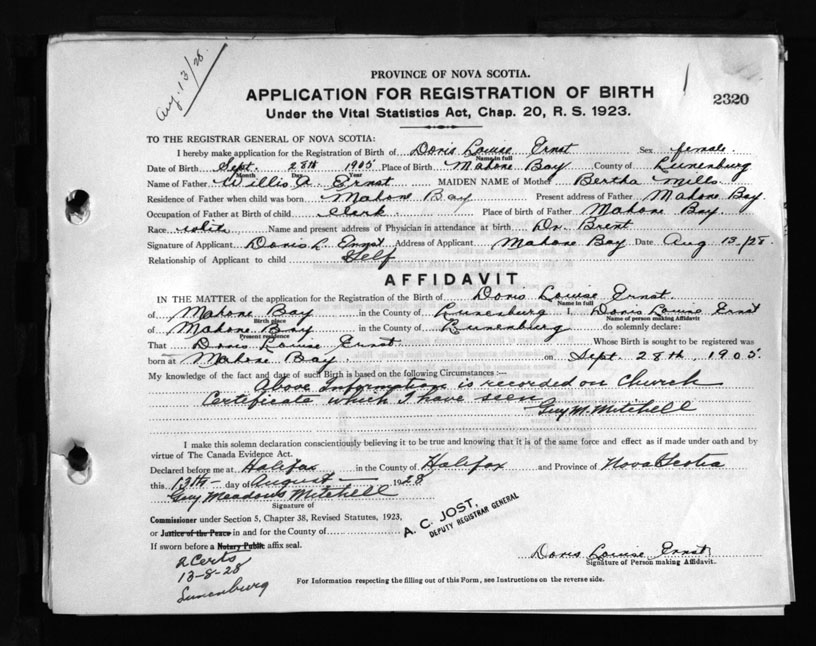 Aug. 13/28.
PROVINCE OF NOVA SCOTIA.
APPLICATION FOR REGISTRATION OF BIRTH
2320
Under the Vital Statistics Act, Chap. 20, R. S. 1923.
TO THE REGISTRAR GENERAL OF NOVA SCOTIA:
I hereby make application for the Registration of Birth of Doris Louise Ernst Sex female.
Name in full
Date of Birth Sept. 28th 1905 Place of Birth Mahone Bay County of Lunenburg
Month Day Year
Name of Father Willis Ernst MAIDEN NAME of Mother Bertha Mills
Residence of Father when child was born Mahone Bay Present address of Father Mahone Bay.
Occupation of Father at Birth of child Clerk Place of birth of Father Mahone Bay.
Race white Name and present address of Physician in attendance at birth Dr. Brent
Signature of Applicant Doris L. Ernst Address of Applicant Mahone Bay Date Aug 13/28.
Relationship of Applicant to child Self
AFFIDAVIT
IN THE MATTER of the application for the Registration of the Birth of Doris Louise Ernst
Name in full
of Mahone Bay in the County of Lunenburg I, Doris Louise Ernst
Birth place Name of person making Affidavit
of Mahone Bay in the County of Lunenburg do solemnly declare:
Present residence
That Doris Louise Ernst Whose Birth is sought to be registered was
born at Mahone Bay. on Sept. 28th, 1905.
My knowledge of the fact and date of such Birth is based on the following Circumstances:—
Above Information is recorded on Church
Certificate which I have seen
Guy M. Mitchell
I make this solemn declaration conscientiously believing it to be true and knowing that it is of the same force and effect as if made under oath and by
virtue of The Canada Evidence Act.
Declared before me at Halifax in the County of Halifax and Province of Nova Scotia
this 13th day of August 1928
Guy Meadows Mitchell
Signature of
Commissioner under Section 5, Chapter 38, Revised Statutes, 1923,
or Justice of the Peace in and for the County of
A. C. JOST,
DEPUTY REGISTRAR GENERAL
If sworn before a Notary Public affix seal.
2 Certs
13-8-28
Lunenburg
Doris Louise Ernst
Signature of Person making Affidavit.
For Information respecting the filling out of this Form, see Instructions on the reverse side.